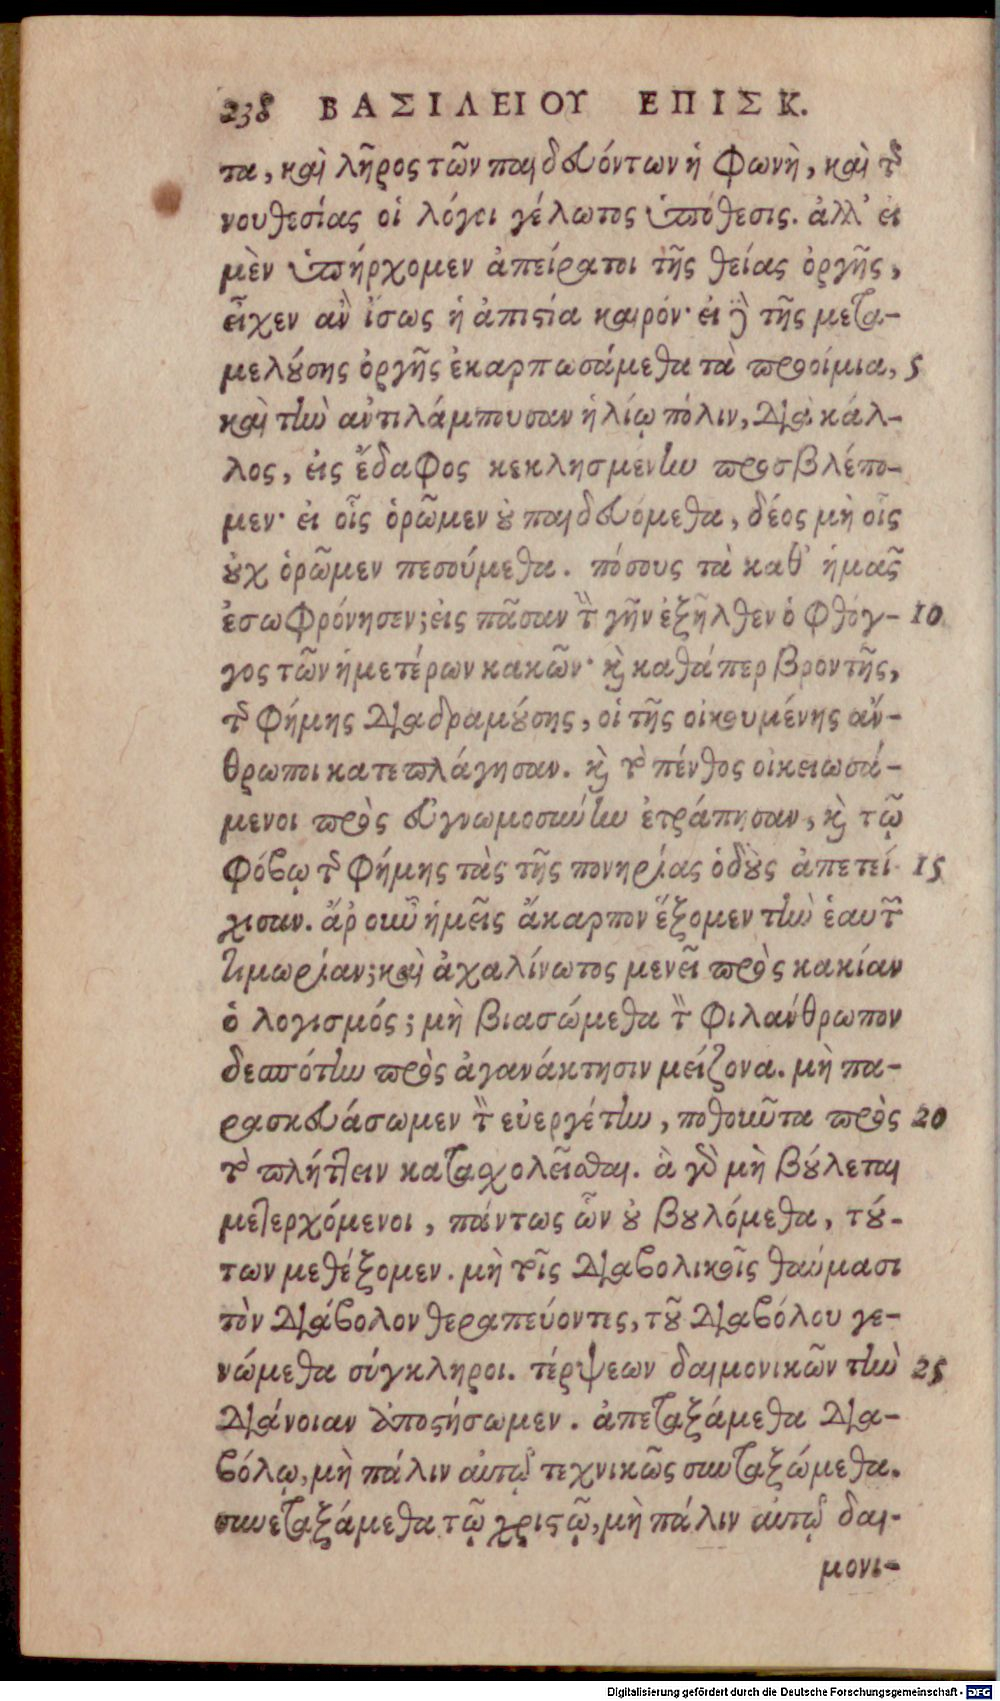 238 ΒΑΣΙΛΕΙΟΥ ΕΠΙΣΚ.
τα, καὶ λῆρος τῶν παιδευόντων ἡ φωνὴ, καὶ τῆς
νουθεσίας οἱ λόγοι γέλωτος ὑπόθεσις. ἀλλ' εἰ
μὲν ὑπήρχομεν ἀπείρατοι τῆς θείας ὀργῆς,
εἶχεν ἂν ἴσως ἡ ἀπιστία καιρόν· εἰ δὲ τῆς μετα-
μελούσης ὀργῆς ἐκαρπωσάμεθα τὰ προοίμια, 5
καὶ τὴν ἀντιλάμπουσαν ἡλίῳ πόλιν, διὰ κάλ-
λος, εἰς ἔδαφος κεκλησμένην προσβλέπο-
μεν· εἰ οἷς ὁρῶμεν οὐ παιδευόμεθα, δέος μὴ οἷς
οὐχ ὁρῶμεν πεσούμεθα. πόσους τὰ καθ' ἡμᾶς
ἐσωφρόνησεν; εἰς πᾶσαν τὴν γῆν ἐξῆλθεν ὁ φθόγ- 10
γος τῶν ἡμετέρων κακῶν· καὶ καθάπερ βροντῆς,
τῆς φήμης διαδραμούσης, οἱ τῆς οἰκουμένης ἄν-
θρωποι κατεπλάγησαν. καὶ τὸ πένθος οἰκειωσά-
μενοι πρὸς εὐγνωμοσύνην ἐτράπησαν, καὶ τῷ
φόβῳ τῆς φήμης τὰς τῆς πονηρίας ὁδοὺς ἀπετεί 15
χισαν. ἆρ' οὖν ἡμεῖς ἄκαρπον ἕξομεν τὴν ἑαυτῶν
τιμωρίαν; καὶ ἀχαλίνωτος μενεῖ πρὸς κακίαν
ὁ λογισμός; μὴ βιασώμεθα τὸν φιλάνθρωπον
δεσπότην πρὸς ἀγανάκτησιν μείζονα. μὴ πα-
ρασκευάσωμεν τὸν εὐεργέτην, ποθοῦντα πρὸς 20
τὸ πλήττειν κατασχολεῖσθαι. ἃ γὰρ μὴ βούλεται
μετερχόμενοι, πάντως ὧν οὐ βουλόμεθα, τού-
των μεθέξομεν. μὴ τοῖς διαβολικοῖς θαύμασι
τὸν διάβολον θεραπεύοντες, τοῦ διαβόλου γε-
νώμεθα σύγκληροι. τέρψεων δαιμονικῶν τὴν 25
διάνοιαν ἀποστήσωμεν. ἀπεταξάμεθα δια-
βόλῳ, μὴ πάλιν αὐτῷ τεχνικῶς συνταξώμεθα.
συνεταξάμεθα τῷ χριστῷ, μὴ πάλιν αὐτῷ δαι-
μονι-
Digitalisierung gefördert durch die Deutsche Forschungsgemeinschaft - DFG